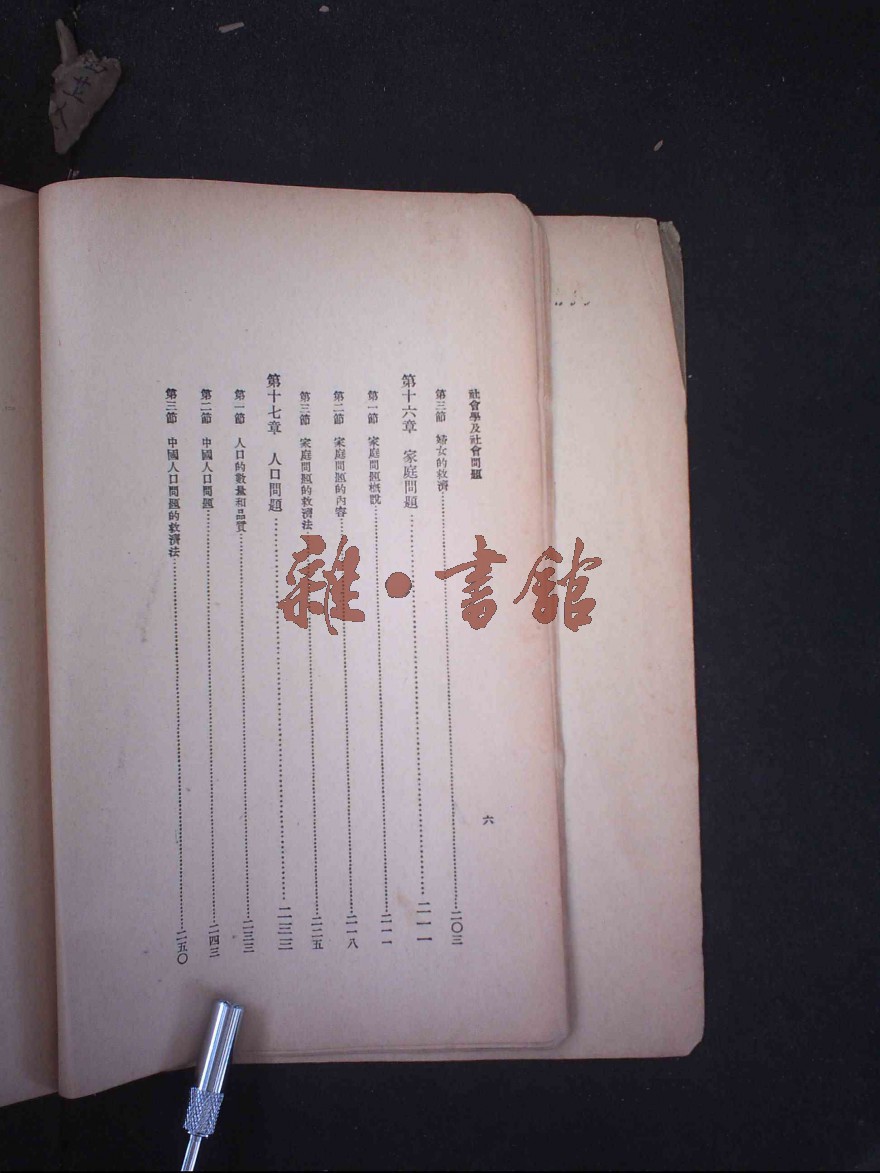 社會學及社會問題
第三節 婦女的救濟……二〇三
第十六章 家庭問題……二一一
第一節 家庭問題概說……二一一
第二節 家庭問題的內容……二一八
第三節 家庭問題的救濟法……二二五
第十七章 人口問題……二三三
第一節 人口的數量和品質……二三三
第二節 中國人口問題……二四三
第三節 中國人口問題的救濟法……二五〇
六
雜·書館